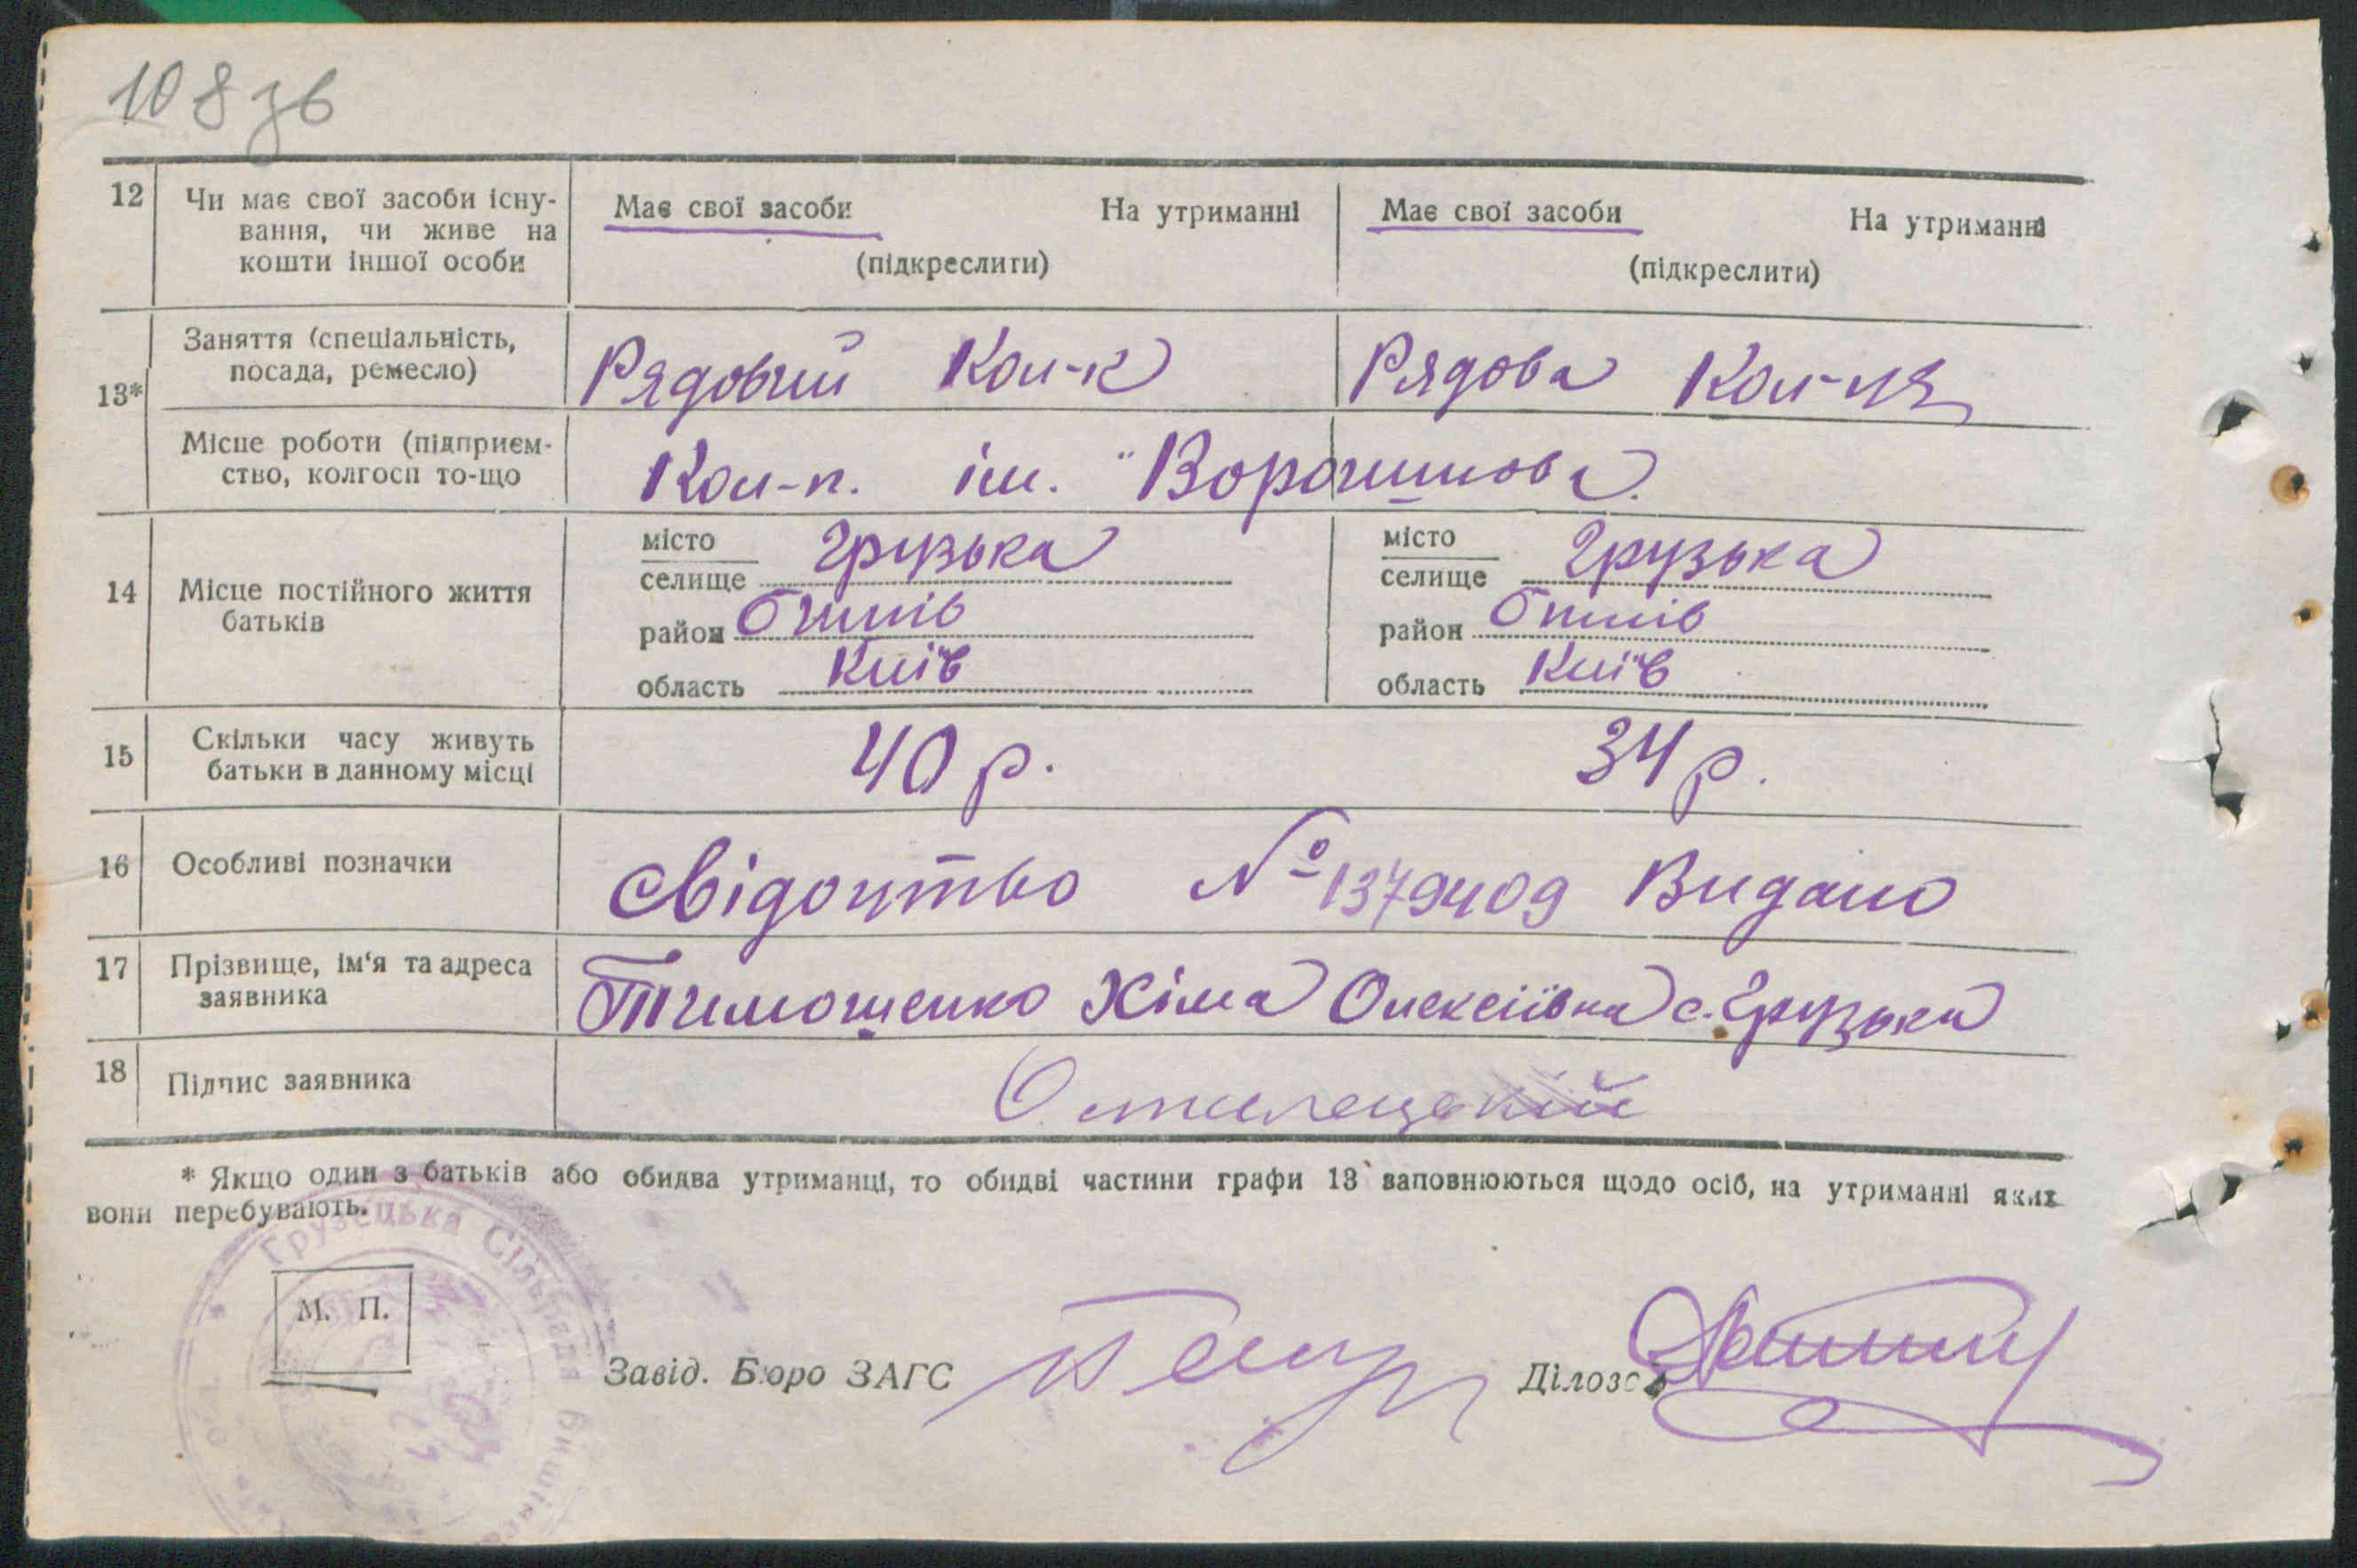 108 зв
12 Чи має свої засоби існу-
вання, чи живе на
кошти іншої особи
Має свої засоби На утриманні
(підкреслити)
Має свої засоби На утриманні
(підкреслити)
13*
Заняття (спеціальність,
посада, ремесло)
Рядовий Кол-к
Рядова Кол-ця
Місце роботи (підприєм-
ство, колгосп то-що
Кол-п. ім. "Ворошилова
14 Місце постійного життя
батьків
місто
селище Грузька
район
область Київ
місто
селище Грузька
район
область Київ
15 Скільки часу живуть
батьки в данному місці
40 р. 34 р.
16 Особливі позначки
Свідоцтво № 1379409 Видано
17 Прізвище, ім'я та адреса
заявника
Тимошенко Хіма Олексіївна с. Грузька
18 Підпис заявника
* Якщо один з батьків або обидва утриманці, то обидві частини графи 13 заповнюються щодо осіб, на утриманні яких
вони перебувають.
Грузецька Сільрада
М. П.
Завід. Бюро ЗАГС
Ділов